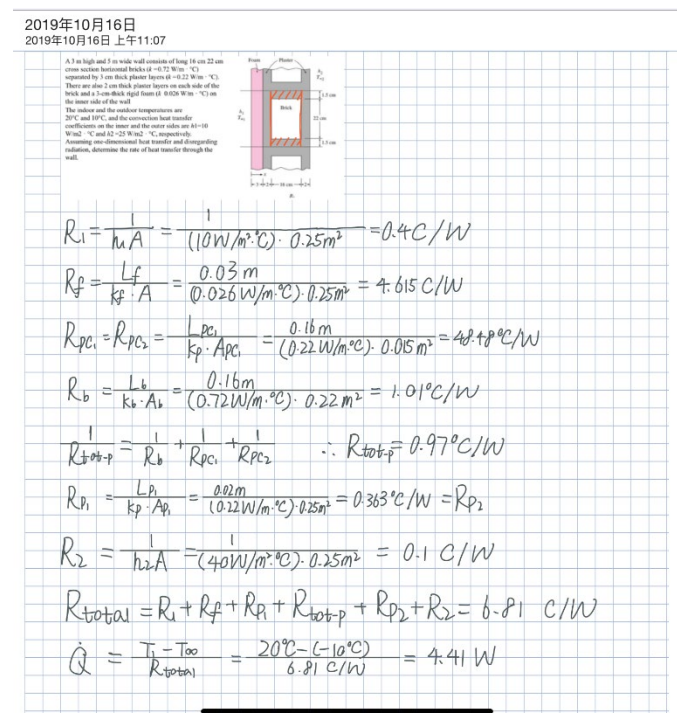 2019年10月16日
2019年10月16日 上午11:07
A 3 m high and 5 m wide wall consists of long 16 cm 22 cm
cross section horizontal bricks (k =0.72 W/m · °C)
separated by 3 cm thick plaster layers (k =0.22 W/m · °C).
There are also 2 cm thick plaster layers on each side of the
brick and a 3-cm-thick rigid foam (k 0.026 W/m · °C) on
the inner side of the wall
The indoor and the outdoor temperatures are
20°C and 10°C, and the convection heat transfer
coefficients on the inner and the outer sides are h1=10
W/m2 · °C and h2 =25 W/m2 · °C, respectively.
Assuming one-dimensional heat transfer and disregarding
radiation, determine the rate of heat transfer through the
wall.
Foam Plaster
Brick
1.5 cm
22 cm
1.5 cm
R₁ = 1 / (h₁A) = 1 / ((10W/m²·°C)· 0.25m²) = 0.4C/W
Rf = Lf / (kf · A) = 0.03 m / ((0.026 W/m·°C)·0.25m²) = 4.615 C/W
Rpc₁ = Rpc₂ = Lpc₁ / (kp · Apc₁) = 0.16m / ((0.22W/m·°C)· 0.015m²) = 48.48°C/W
Rb = Lb / (kb · Ab) = 0.16m / ((0.72W/m·°C)· 0.22m²) = 1.01°C/W
1/Rtot-p = 1/Rb + 1/Rpc₁ + 1/Rpc₂ ∴ Rtot-p = 0.97°C/W
Rp₁ = Lp₁ / (kp · Ap₁) = 0.02m / ((0.22W/m·°C)·0.25m²) = 0.363°C/W = Rp₂
R₂ = 1 / (h₂A) = 1 / ((40W/m²·°C)· 0.25m²) = 0.1 C/W
Rtotal = R₁ + Rf + Rp₁ + Rtot-p + Rp₂ + R₂ = 6.81 C/W
Q̇ = (T₁ - T∞) / Rtotal = (20°C-(-10°C)) / (6.81 C/W) = 4.41 W